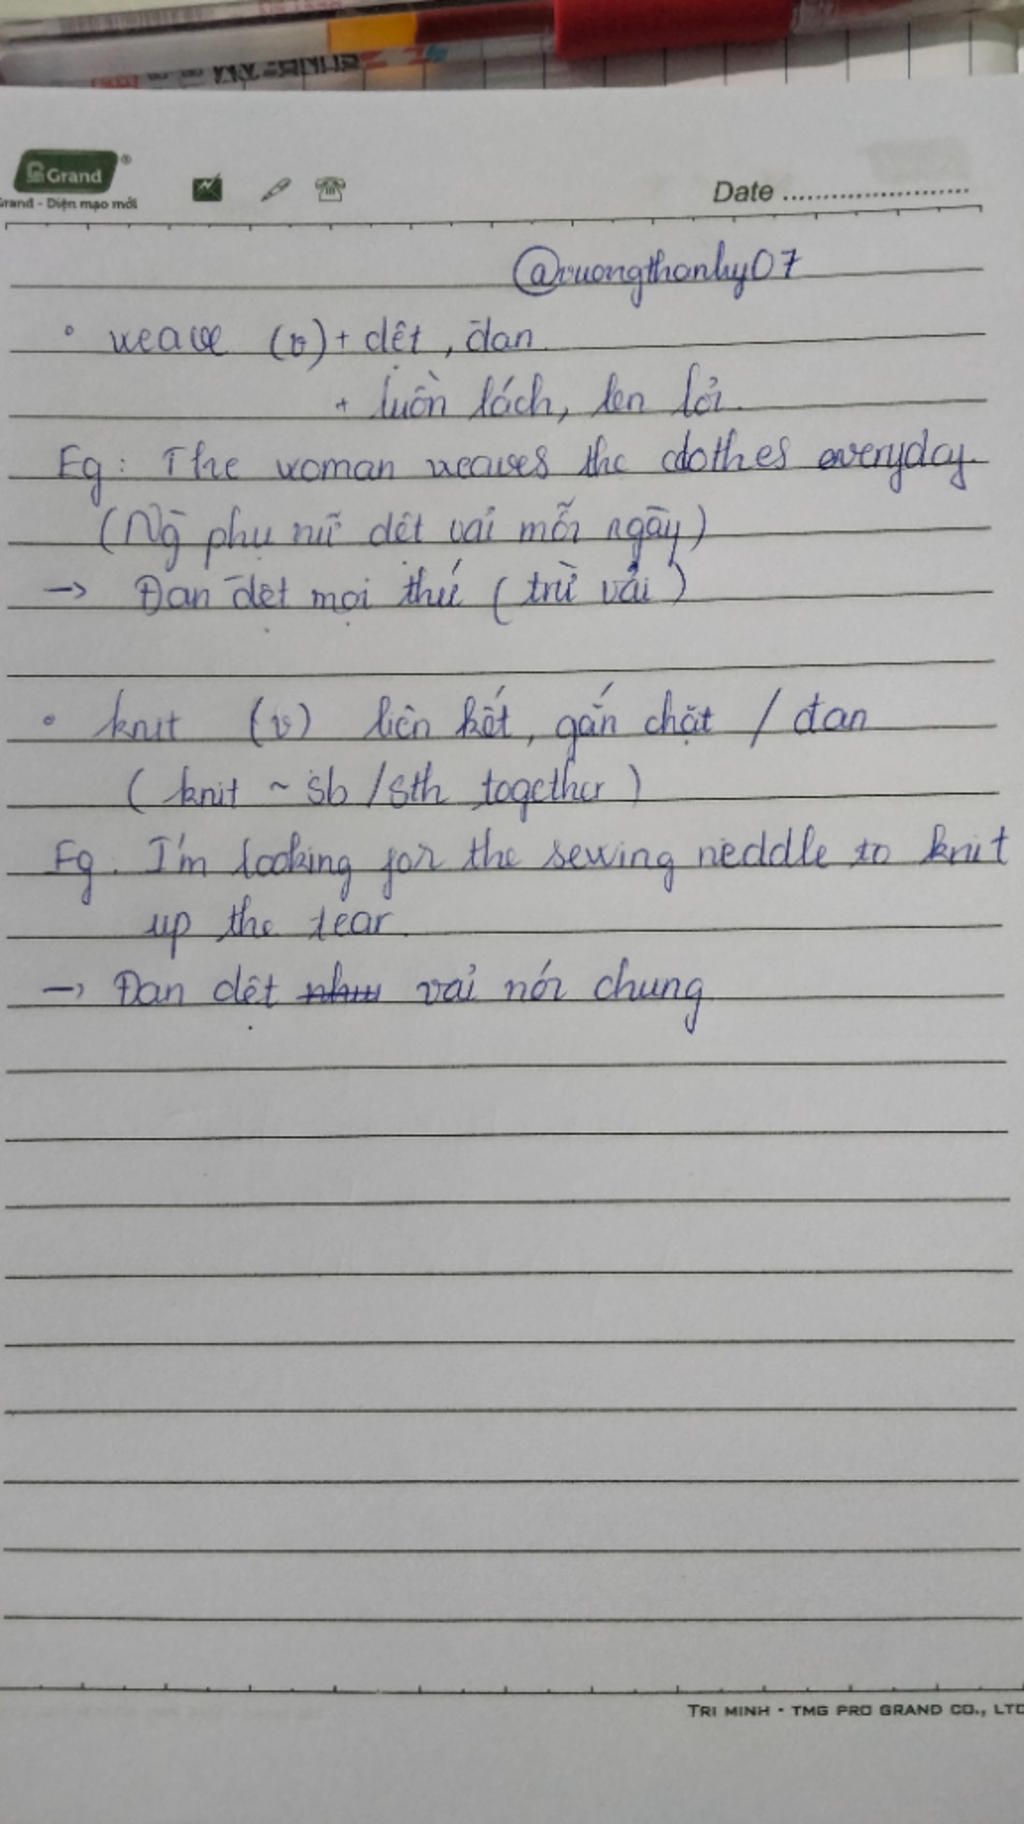 Grand®
Grand - Diện mạo mới
Date
@vuongthanhy07
• weave (v) + dệt, đan
+ luồn lách, len lỏi.
Eg: The woman weaves the clothes everyday.
(Ng̀ phụ nữ dệt vải mỗi ngày)
→ Đan dệt mọi thứ (trừ vải)
• knit (v) liên kết, gắn chặt / đan
(knit ~ sb/sth together)
Eg. I'm looking for the sewing neddle to knit
up the tear.
→ Đan dệt như vải nói chung
TRI MINH - TMG PRO GRAND CO., LTD